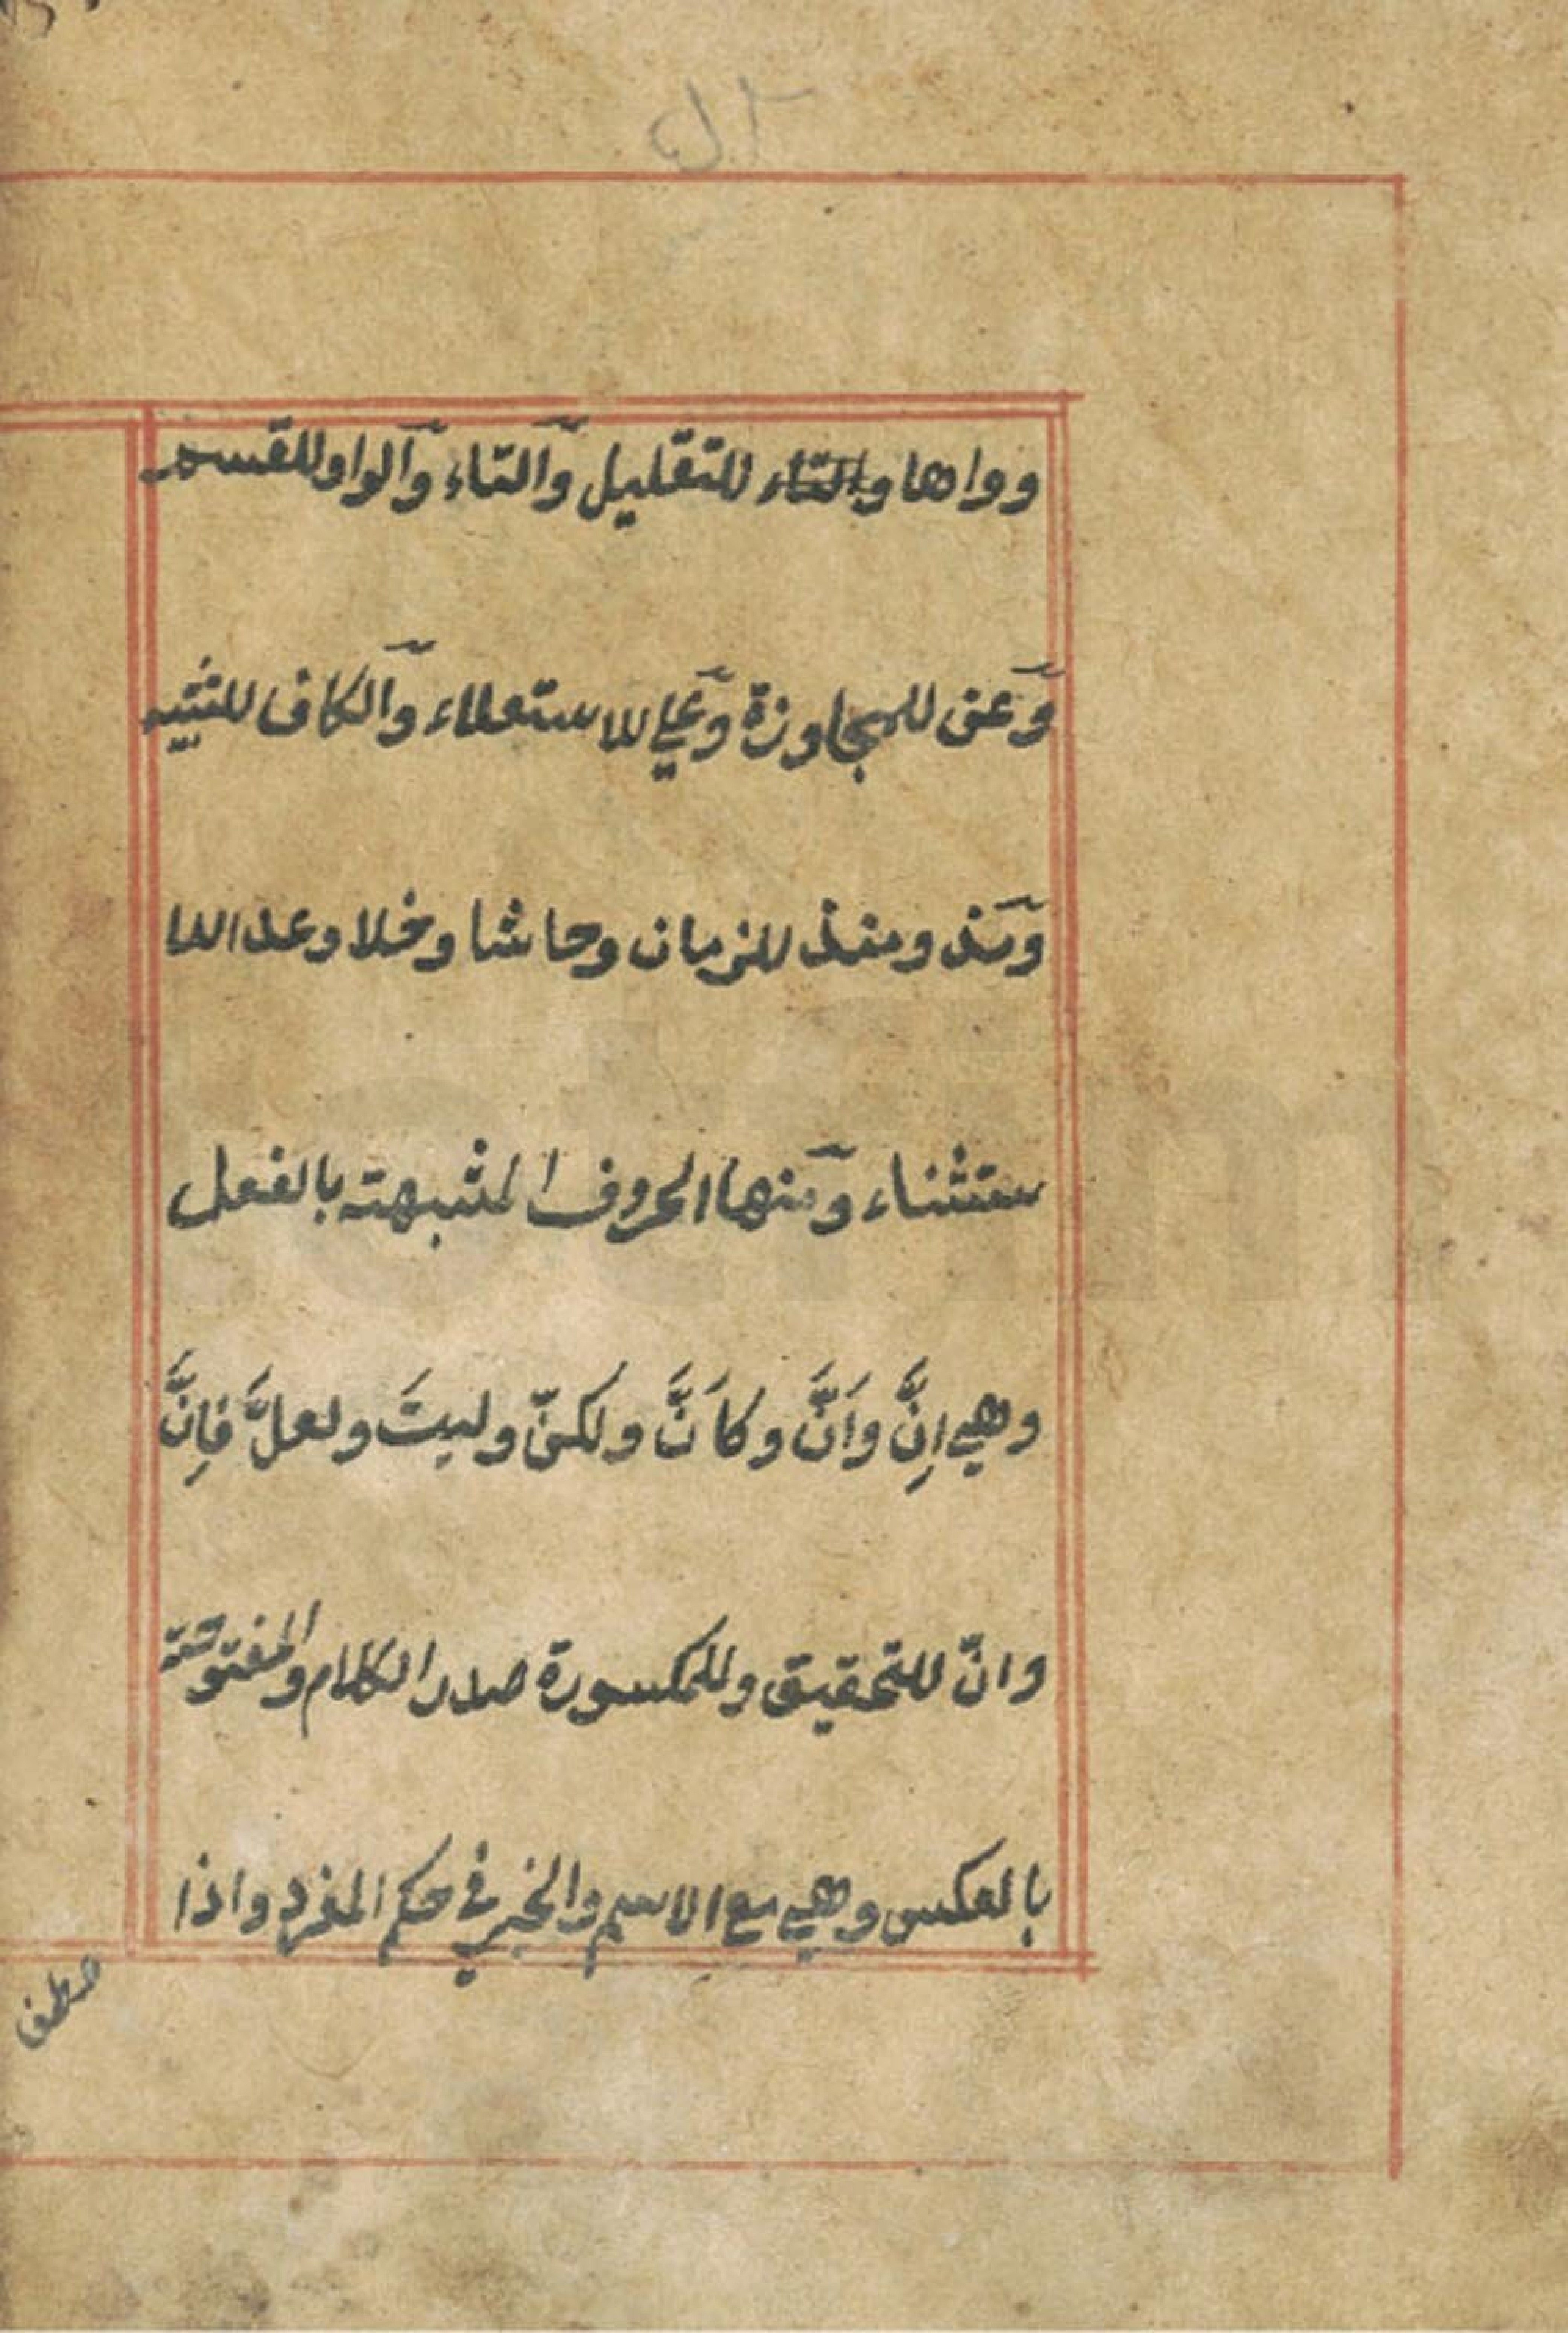 وواها والتاء للتقليل والتاء والواو للقسم
وعن للمجاوزة وعلي للاستعلاء والكاف للتشبيه
ومذ ومنذ للزمان وحاشا وخلا وعدا للا
ستثناء ومنها الحروف المشبهته بالفعل
وهي اِنَّ واَنَّ وكاَنَّ ولكنّ وليتَ ولعلَّ فاِنَّ
وانّ للتحقيق وللمكسورة صدر الكلام والمفتوحته
بالعكس وهي مع الاسم والخبر في حكم المفرد واذا